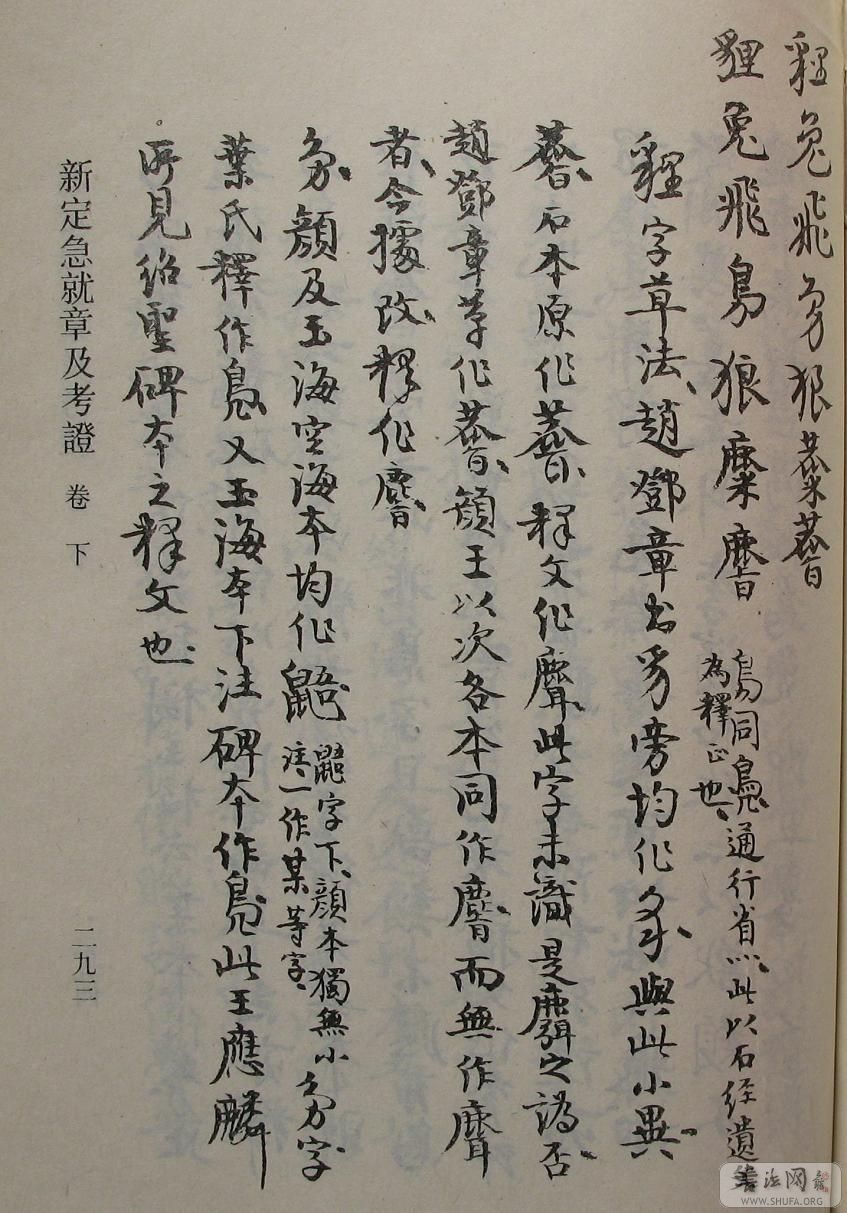 貍兔飛
貍兔飛鳬狼麋麐
鳬同鳧通行省灬此以石經遺字
為釋正也
貍字草法趙鄧章書豸旁均作 與此小異
石本原作 釋文作 此字未識是 之譌否
趙鄧章草作 顏王以次各本同作麐而無作
者今據改釋作麐
顏及玉海空海本均作鼯
鼯字下顏本獨無小 字
注一作某等字
葉氏釋作鳧又玉海本下注碑本作鳧此王應麟
所見紹聖碑本之釋文也
新定急就章及考證 卷下
二九三
書法网
WWW.SHUFA.ORG